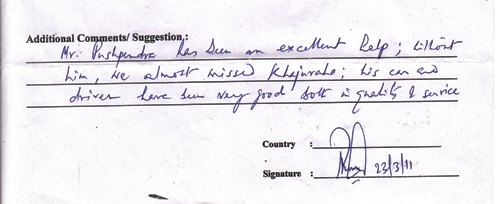 Additional Comments/ Suggestion :
Mr. Pushpendra has been an excellent help; without
him, we almost missed Khajuraho; his car and
driver have been very good both in quality & service
Country :
Signature : 23/3/11